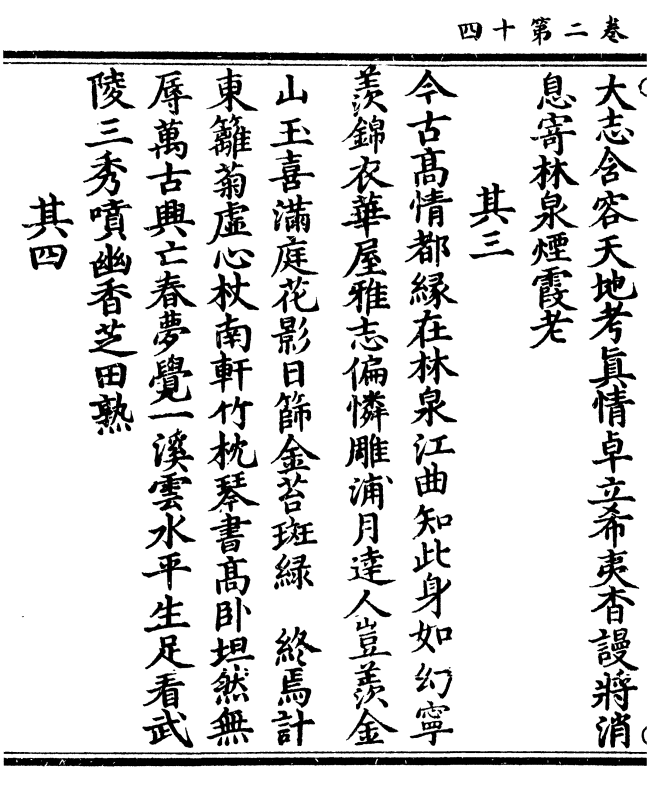 卷二第十四
大志含容天地考眞情卓立希夷杳謾將消
息寄林泉煙霞老
其三
今古髙情都緣在林泉江曲知此身如幻寧
羨錦衣華屋雅志偏憐雕浦月達人豈羨金
山玉喜滿庭花影日篩金苔斑緑　終焉計
東籬菊虛心杖南軒竹枕琴書髙卧坦然無
辱萬古興亡春夢覺一溪雲水平生足看武
陵三秀噴幽香芝田熟
其四